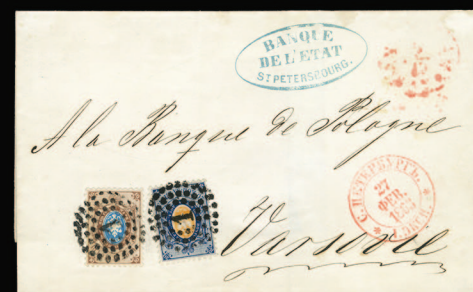 BANQUE
DE L'ETAT
ST PETERSBOURG.
A la Banque de Pologne
С. ПЕТЕРБУРГЪ.
27
ФЕВ.
1
Varsovie